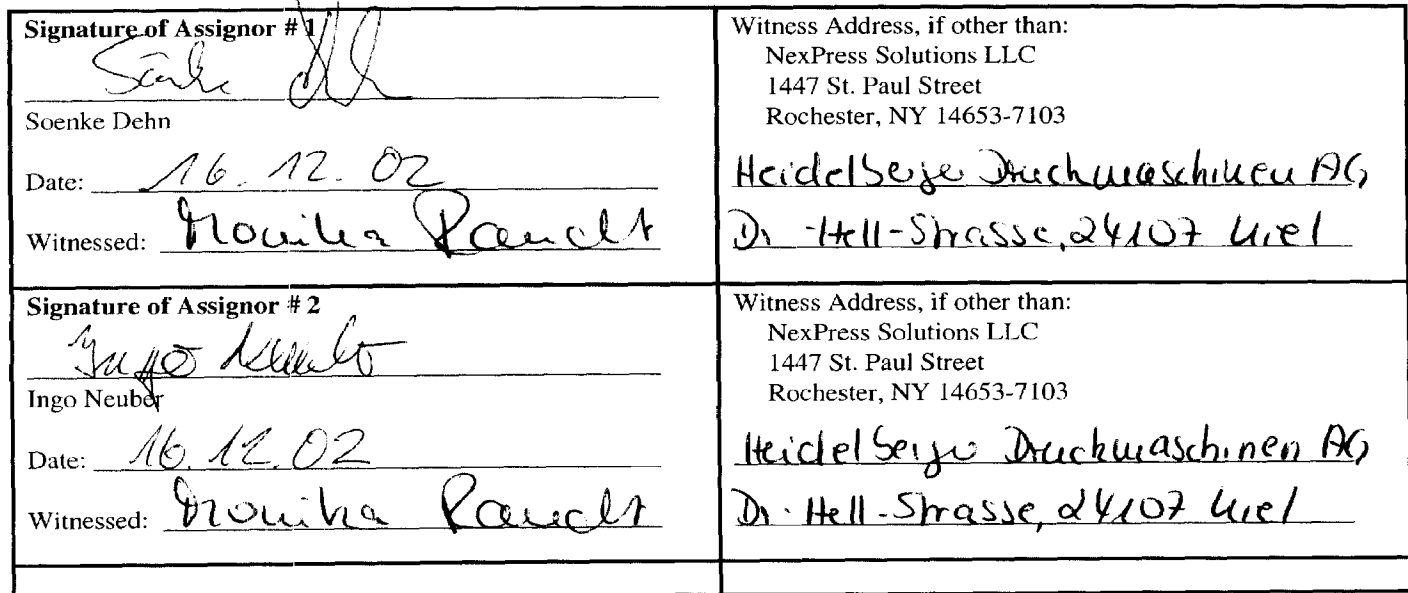 Signature of Assignor # 1
Soenke Dehn
Date: 16.12.02
Witnessed: Monika
Witness Address, if other than:
NexPress Solutions LLC
1447 St. Paul Street
Rochester, NY 14653-7103
Heidelberger Druckmaschinen AG
Dr.-Hell-Strasse, 24107 Kiel
Signature of Assignor # 2
Ingo Neuber
Date: 16.12.02
Witnessed: Monika
Witness Address, if other than:
NexPress Solutions LLC
1447 St. Paul Street
Rochester, NY 14653-7103
Heidelberger Druckmaschinen AG
Dr. Hell-Strasse, 24107 Kiel